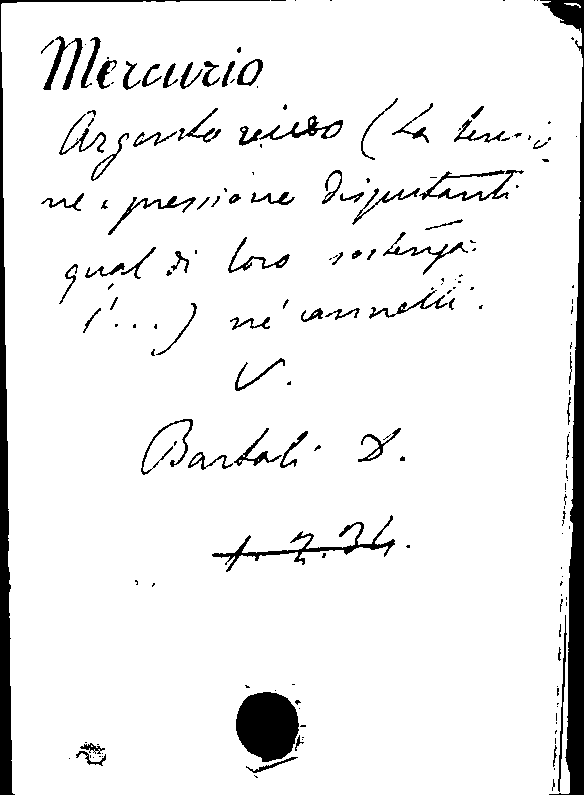 Mercurio
Argento vivo (La tensio
ne e pressione disputanti
qual di loro sostenga
(...) né cannelli.
V.
Bartoli D.
1.2.34.